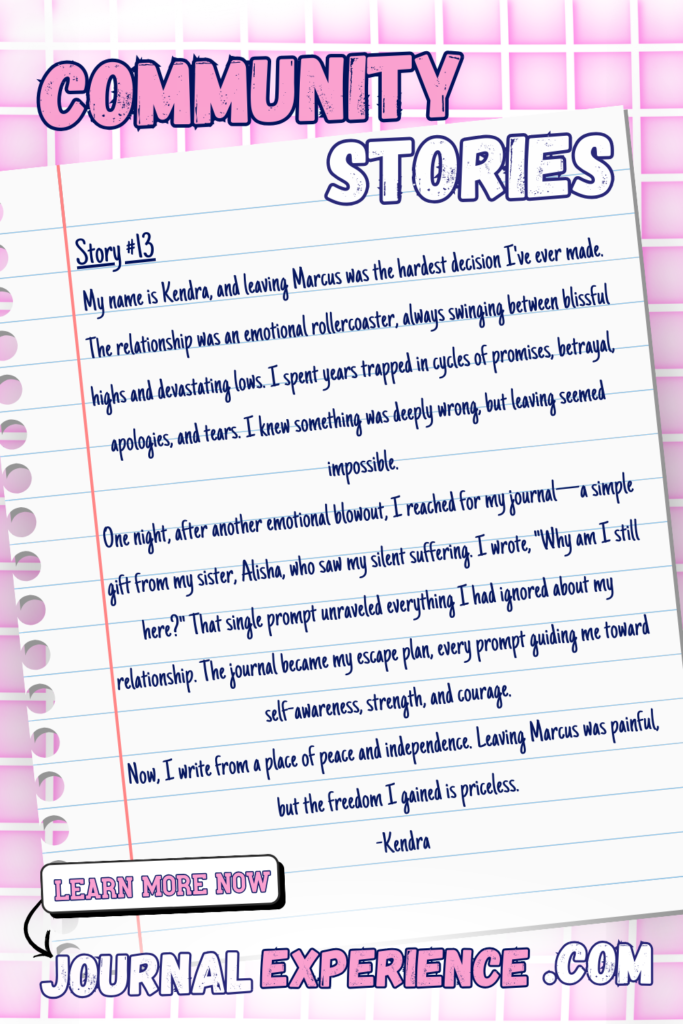 COMMUNITY
STORIES
Story #13
My name is Kendra, and leaving Marcus was the hardest decision I've ever made.
The relationship was an emotional rollercoaster, always swinging between blissful
highs and devastating lows. I spent years trapped in cycles of promises, betrayal,
apologies, and tears. I knew something was deeply wrong, but leaving seemed
impossible.
One night, after another emotional blowout, I reached for my journal—a simple
gift from my sister, Alisha, who saw my silent suffering. I wrote, "Why am I still
here?" That single prompt unraveled everything I had ignored about my
relationship. The journal became my escape plan, every prompt guiding me toward
self-awareness, strength, and courage.
Now, I write from a place of peace and independence. Leaving Marcus was painful,
but the freedom I gained is priceless.
-Kendra
LEARN MORE NOW
JOURNAL EXPERIENCE .COM